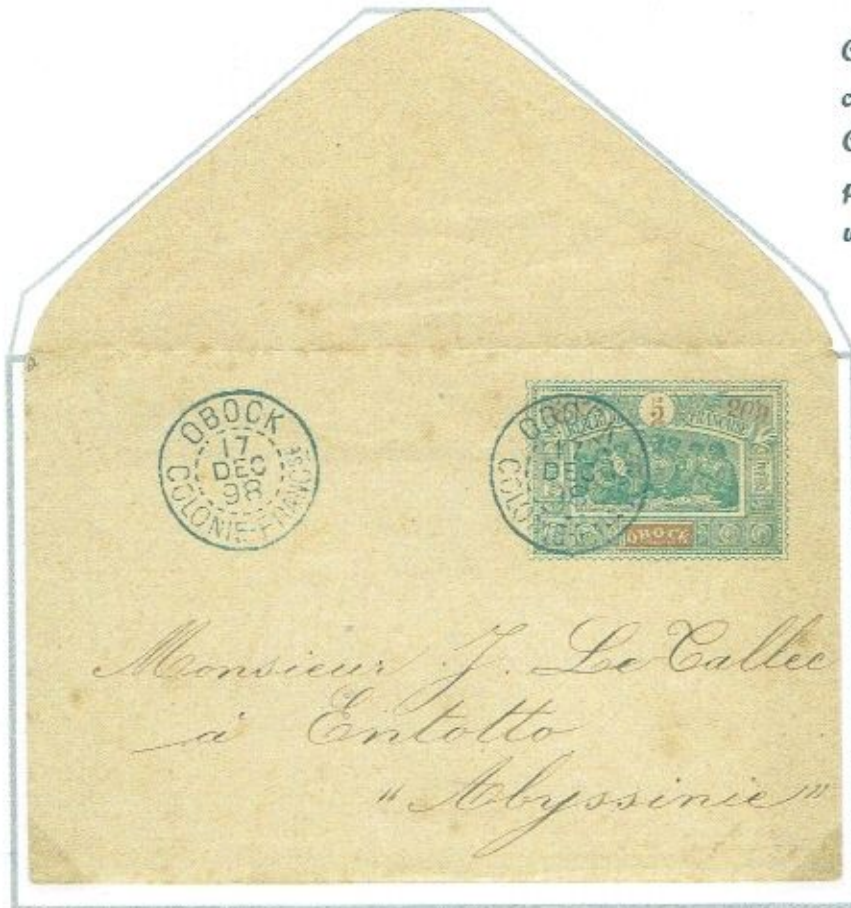 OBOCK
17
DEC
98
COLONIE-FRANCAISE
5
OBOCK
OBOCK
17
DEC
98
Monsieur J. Le Tallec
à Entotto
"Abyssinie"